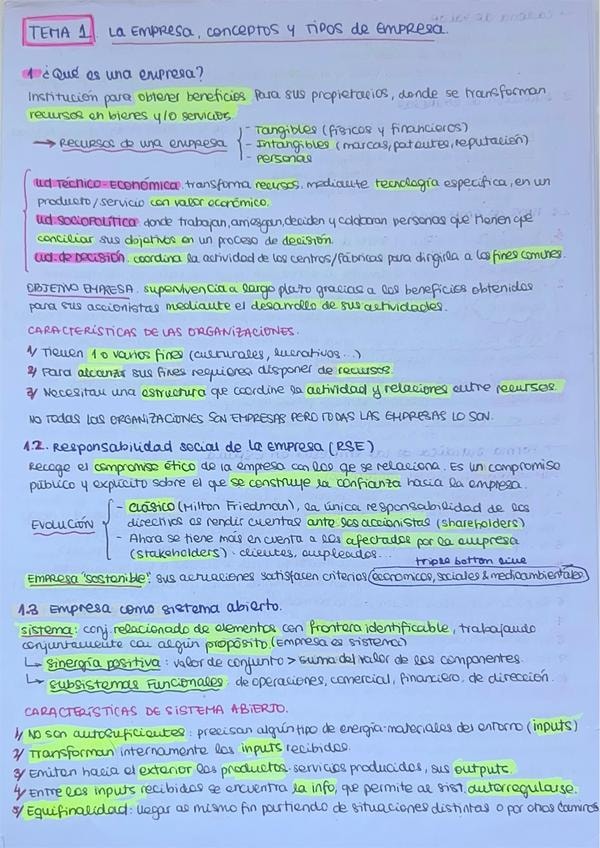 TEMA 1. La Empresa, conceptos y Tipos de Empresa.
1 ¿Qué es una empresa?
Institución para obtener beneficios para sus propietarios, donde se transforman
recursos en bienes y/o servicios.
→ Recursos de una empresa
- Tangibles (físicos y financieros)
- Intangibles (marcas, patentes, reputación)
- Personas
ud Técnico-Económica. transforma recursos. mediante tecnología específica, en un
producto/servicio con valor económico.
ud sociopolítica donde trabajan, arriesgan, deciden y colaboran personas que tienen que
conciliar sus objetivos en un proceso de decisión.
ud. de Decisión. coordina la actividad de los centros/fábricas para dirigirla a los fines comunes.
OBJETIVO EMPRESA. supervivencia a largo plazo gracias a los beneficios obtenidos
para sus accionistas mediante el desarrollo de sus actividades.
CARACTERÍSTICAS DE LAS ORGANIZACIONES.
1/ Tienen 1 o varios fines (culturales, lucrativos...)
2/ Para alcanzar sus fines requieren disponer de recursos.
3/ Necesitan una estructura que coordine la actividad y relaciones entre recursos.
NO TODAS LAS ORGANIZACIONES SON EMPRESAS PERO TODAS LAS EMPRESAS LO SON.
1.2. Responsabilidad social de la empresa (RSE)
Recoge el compromiso ético de la empresa con los qe se relaciona. Es un compromiso
público y explícito sobre el que se construye la confianza hacia la empresa.
EVOLUCIÓN
- Clásico (Milton Friedman), la única responsabilidad de los
directivos es rendir cuentas ante los accionistas (shareholders)
- Ahora se tiene más en cuenta a los afectados por la empresa
(stakeholders). clientes, empleados...
triple bottom line
Empresa "sostenible": sus actuaciones satisfacen criterios económicos, sociales & medioambientales
1.3 Empresa como sistema abierto.
sistema: conj. relacionado de elementos con frontera identificable, trabajando
conjuntamente con algún propósito. (Empresa es sistema)
↳ Sinergia positiva: valor de conjunto > suma del valor de los componentes.
↳ Subsistemas Funcionales: de operaciones, comercial, financiero, de dirección.
CARACTERÍSTICAS DE SISTEMA ABIERTO.
1/ No son autosuficientes: precisan algún tipo de energía-materiales del entorno (inputs)
2/ Transforman internamente los inputs recibidos.
3/ Emiten hacia el exterior los productos-servicios producidos, sus outputs.
4/ Entre los inputs recibidos se encuentra la info, que permite al sist. autorregularse.
5/ Equifinalidad: llegar al mismo fin partiendo de situaciones distintas o por otros caminos